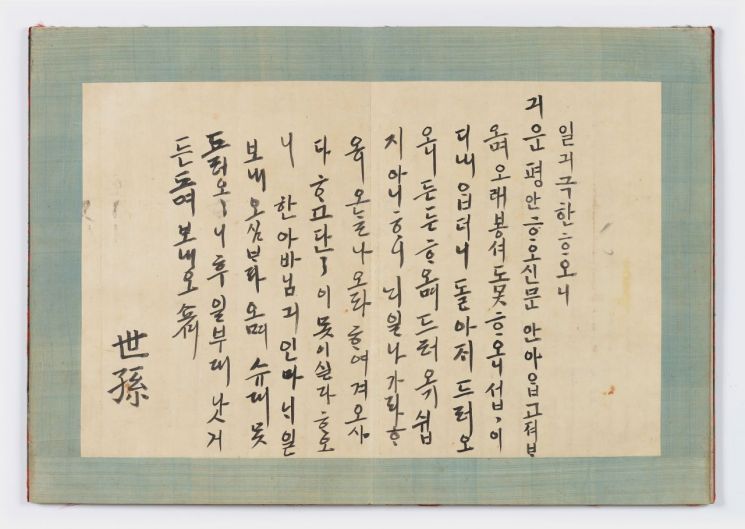 일긔극한ᄒᆞ오니
긔운평안ᄒᆞ오신문안아ᄋᆞᆸ고져ᄇᆞ
오며오래봉셔도못ᄒᆞ오니섭〻이
디내ᄋᆞᆸ더니돌아지드러오
오니든든ᄒᆞ오며드러오기쉽
지아니ᄒᆞ니ᄂᆡ일나가라ᄒᆞ
ᄋᆞᆸ오ᄂᆞᆯ나오라ᄒᆞ여겨오시
다ᄒᆞ고단〻이못이실다ᄒᆞ오
니한아바님긔인마ᄂᆡ일
보내오심ᄇᆞ라오며슈대못
드러오〻니후일부대낫거
든드여보내오쇼셔
世孫